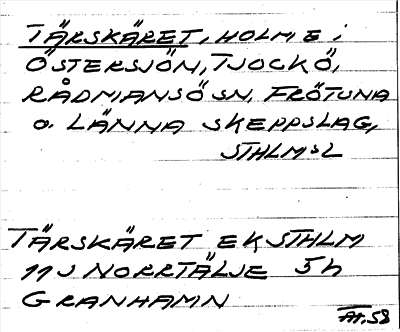 TÄRSKÄRET, HOLME i
ÖSTERSJÖN, TJOCKÖ,
RÅDMANSÖ SN, FRÖTUNA
o. LÄNNA SKEPPSLAG,
STHLMS L
TÄRSKÄRET EK STHLM
11 J NORRTÄLJE 5 h
GRANHAMN
58